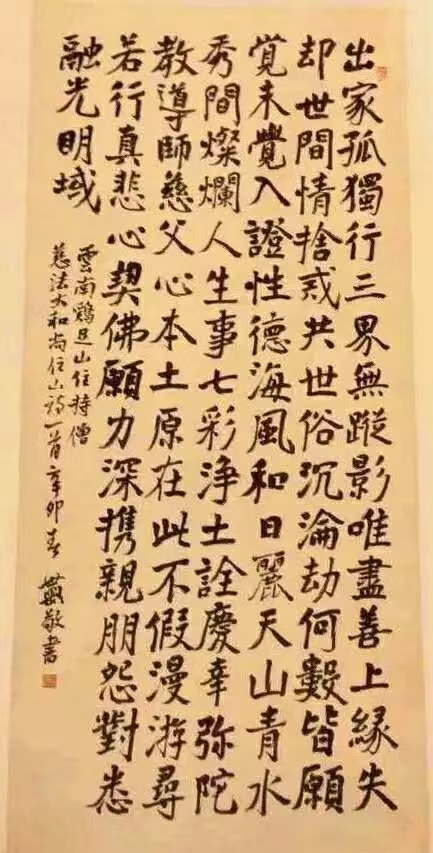 出家孤獨行三界無蹤影唯盡善上緣失
却世間情捨戒共世俗沉淪劫何數皆願
覺未覺入證性德海風和日麗天山青水
秀間燦爛人生事七彩淨土詮慶幸弥陀
教導師慈父心本土原在此不假漫游尋
若行真悲心契佛願力深携親朋怨對悉
融光明域
雲南鷄足山住持僧
慈法大和尚住山詩一首辛卯春 敬書